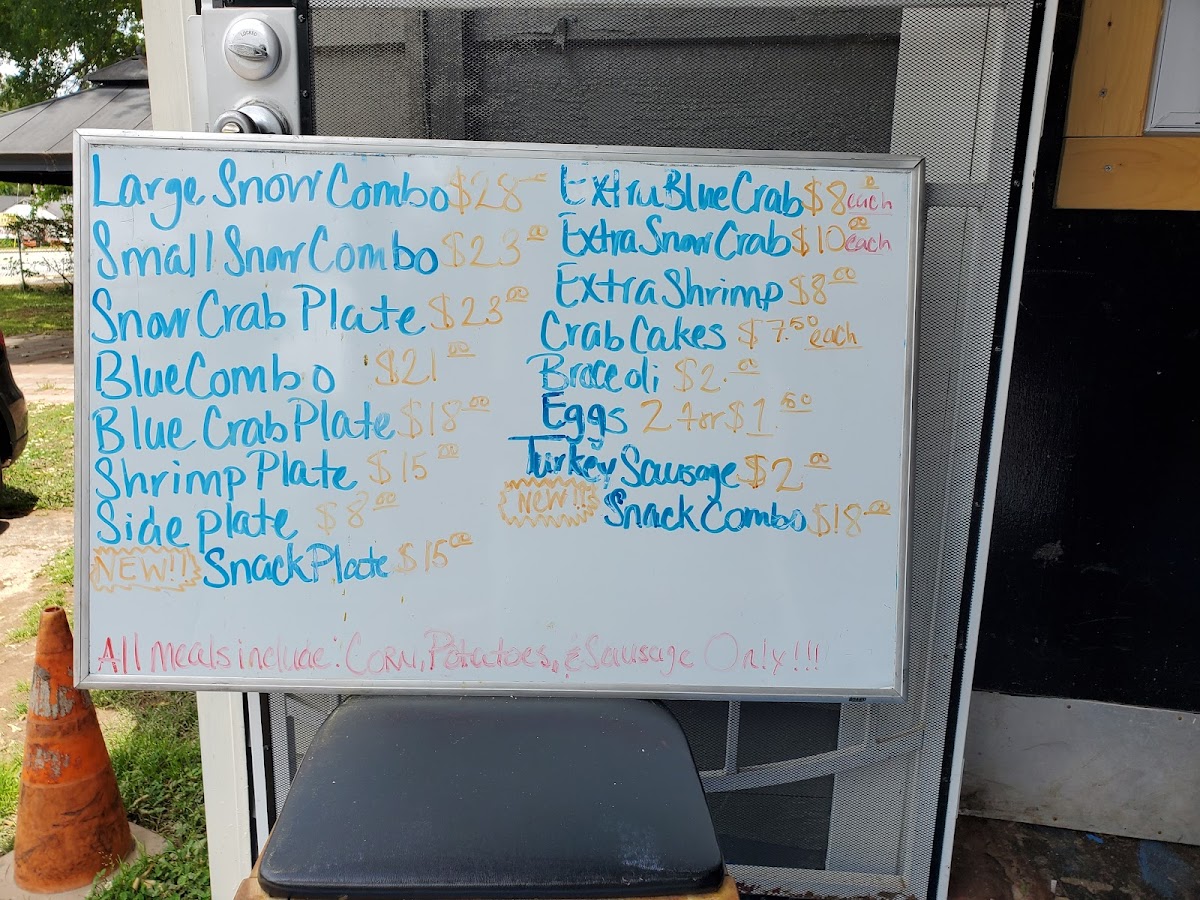 Large Snow Combo $28.00
Small Snow Combo $23.00
Snow Crab Plate $23.00
Blue Combo $21.00
Blue Crab Plate $18.00
Shrimp Plate $15.00
Side plate $8.00
NEW!! Snack Plate $15.00
Extra Blue Crab $8.00 each
Extra Snow Crab $10.00 each
Extra Shrimp $8.00
Crab Cakes $7.50 each
Broccoli $2.00
Eggs 2 for $1.50
Turkey Sausage $2.00
NEW!! Snack Combo $18.00
All meals include: Corn, Potatoes, & Sausage Only!!!